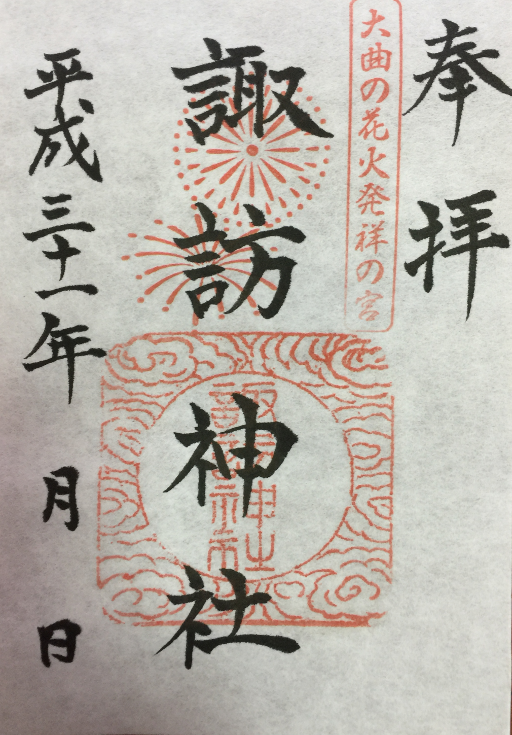 奉拝
大曲の花火発祥の宮
諏訪神社
平成三十一年 月 日